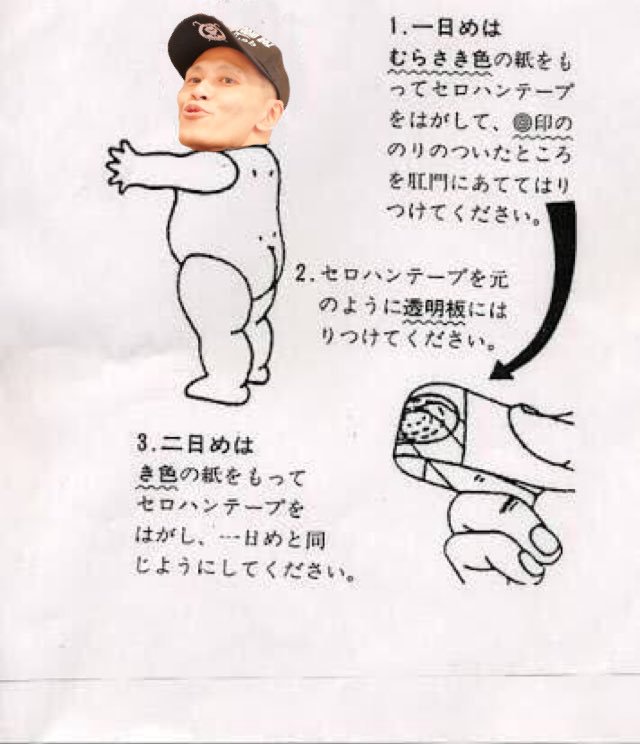 1.一日めは
むらさき色の紙をも
ってセロハンテープ
をはがして、◎印の
のりのついたところ
を肛門にあててはり
つけてください。
2.セロハンテープを元
のように透明板には
りつけてください。
3.二日めは
き色の紙をもって
セロハンテープを
はがし、一日めと同
じようにしてください。